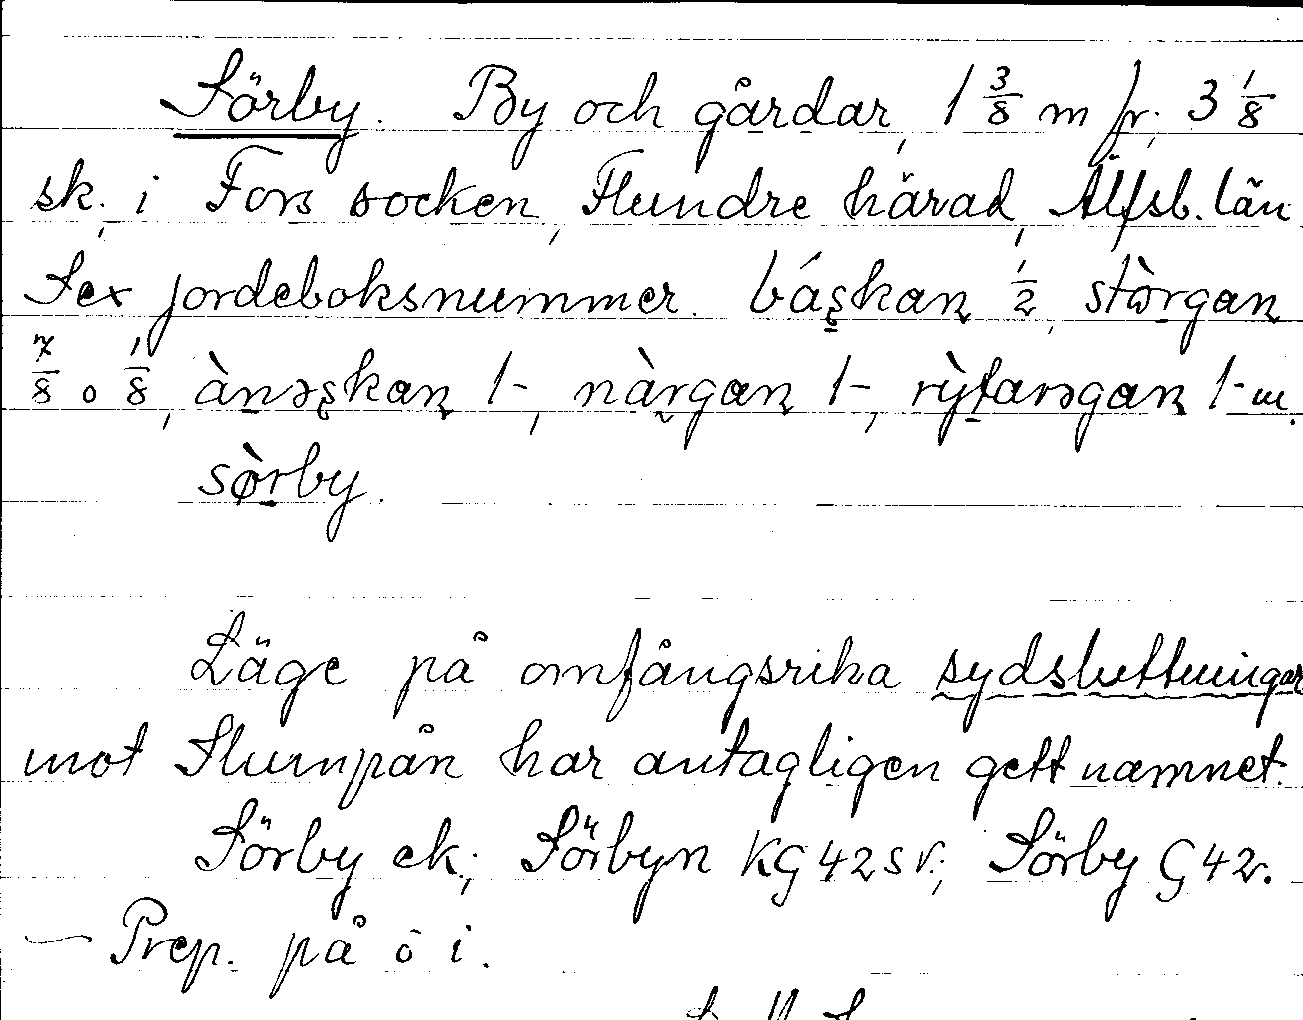 Sörby. By och gårdar, 1 3/8 m fr. 3 1/8
sk. i Fors socken, Flundre härad, Älfsb. län
Sex jordeboksnummer. báʂkaɳ 1/2, stòrgaɳ
7/8 o 1/8, ànəʂkaɳ 1-, nàrgaɳ 1-, rỳtarəgaɳ 1- m.
sø̀rby.
Läge på omfångsrika sydsluttningar
mot Slumpån har antagligen gett namnet.
Sörby ek.; Sörbyn KG 42 s v.; Sörby G 42 r.
— Prep. på o i.